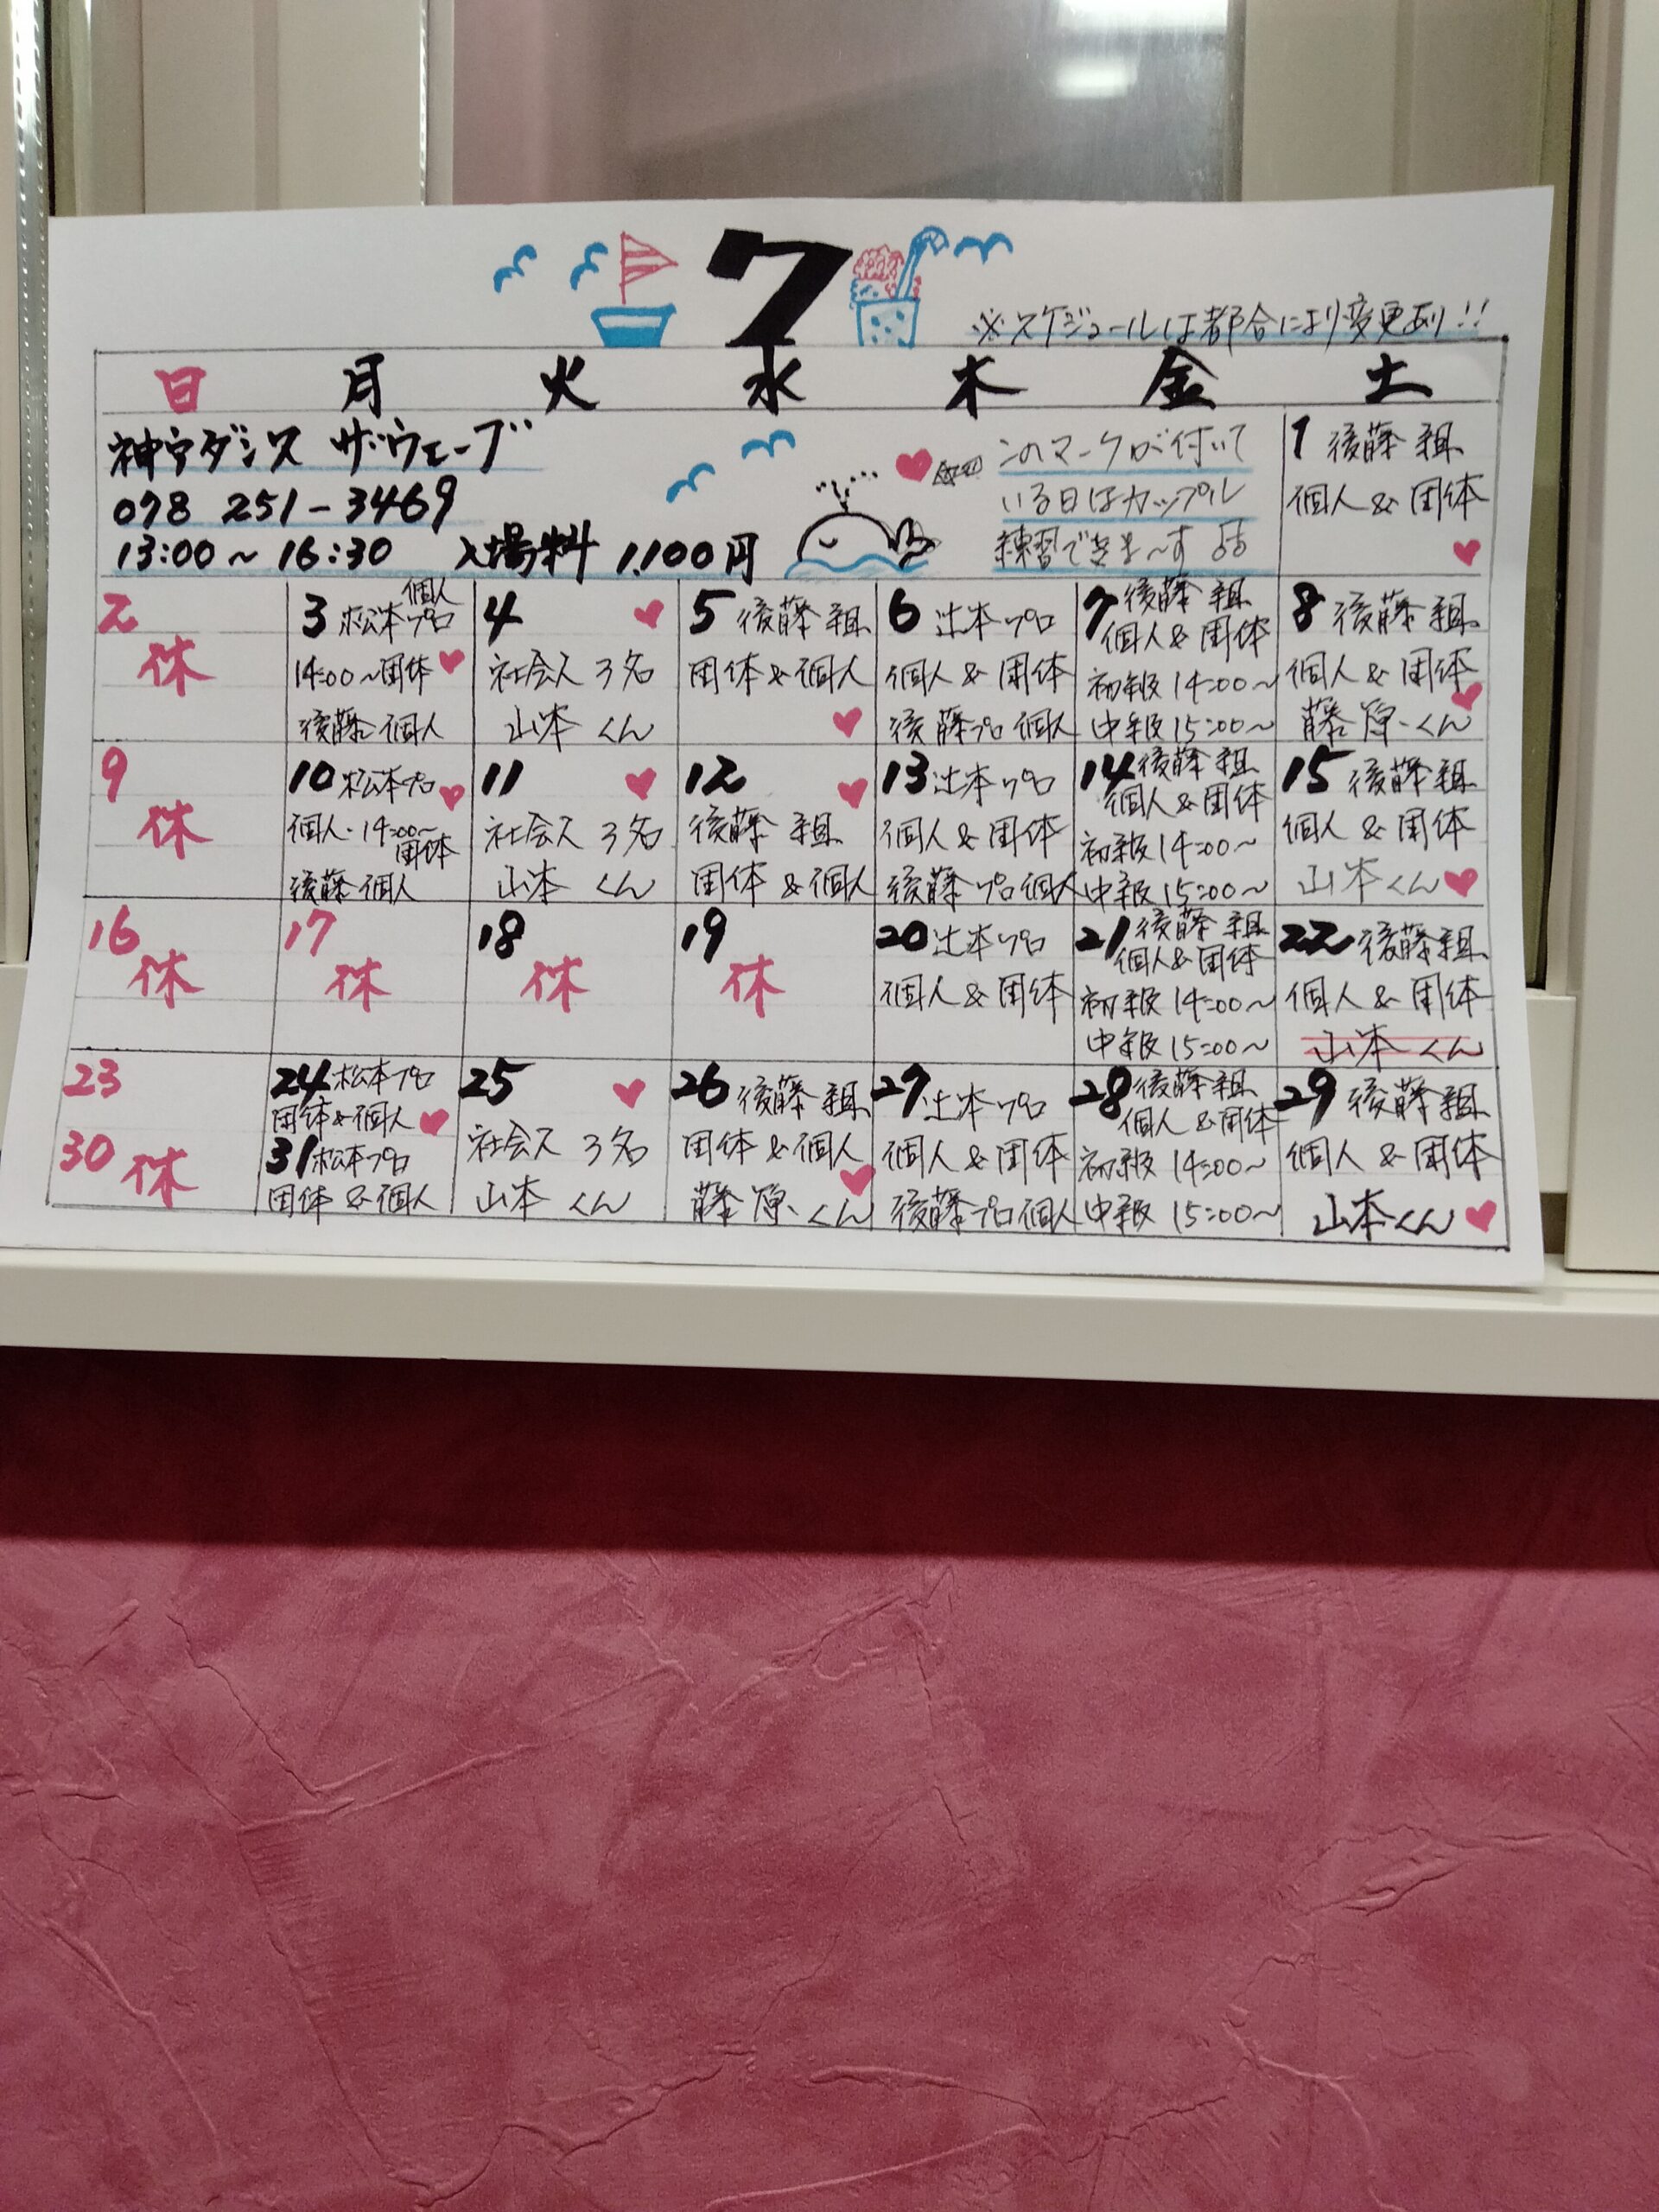 7
※スケジュールは都合により変更あり!!
日 月 火 水 木 金 土
神戸ダンス ザ・ウェーブ
078 251-3469
13:00～16:30 入場料 1,100円
このマークが付いて
いる日はカップル
練習できま～す
1 後藤組
個人&団体
2
休
3 松本プロ 個人
14:00～団体
後藤個人
4
社会人3名
山本くん
5 後藤組
団体&個人
6 辻本プロ
個人&団体
後藤プロ個人
7 後藤組
個人&団体
初級14:00～
中級15:00～
8 後藤組
個人&団体
藤原くん
9
休
10 松本プロ
個人・14:00～
団体
後藤個人
11
社会人3名
山本くん
12
後藤組
団体&個人
13 辻本プロ
個人&団体
後藤プロ個人
14 後藤組
個人&団体
初級14:00～
中級15:00～
15 後藤組
個人&団体
山本くん
16
休
17
休
18
休
19
休
20 辻本プロ
個人&団体
21 後藤組
個人&団体
初級14:00～
中級15:00～
22 後藤組
個人&団体
山本くん
23
30 休
24 松本プロ
団体&個人
31 松本プロ
団体&個人
25
社会人3名
山本くん
26 後藤組
団体&個人
藤原くん
27 辻本プロ
個人&団体
後藤プロ個人
28 後藤組
個人&団体
初級14:00～
中級15:00～
29 後藤組
個人&団体
山本くん